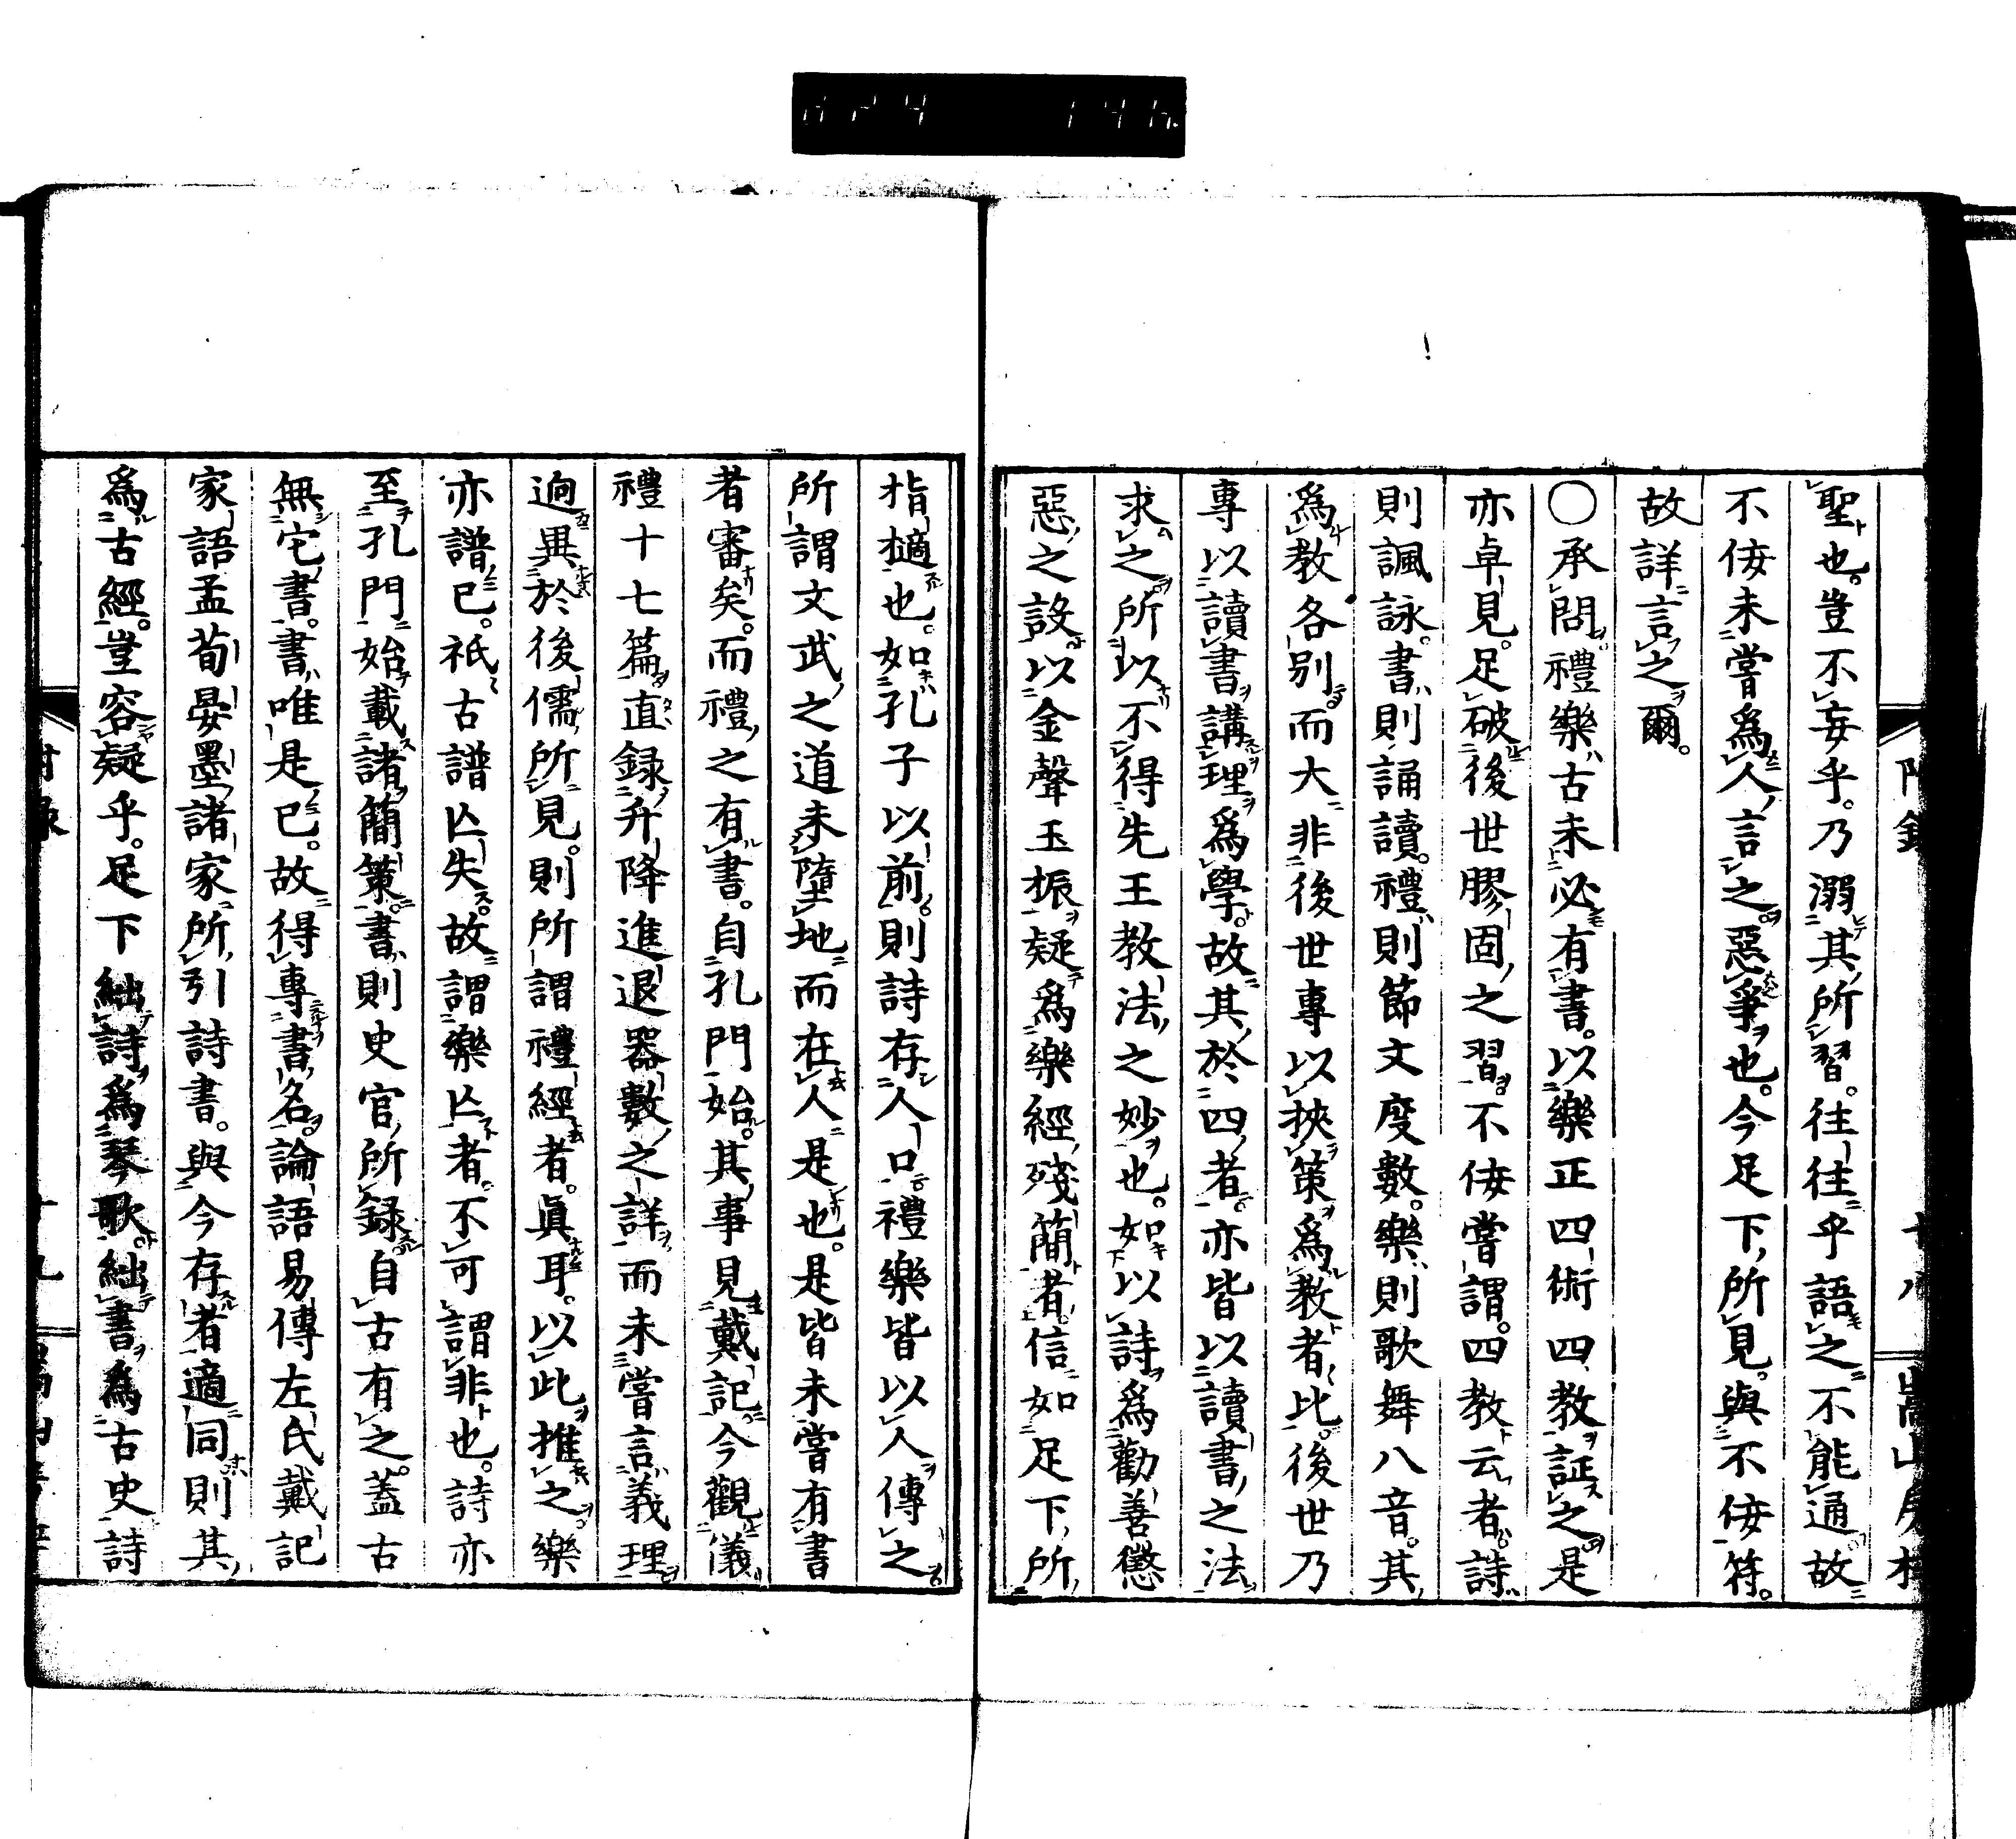 聖也。豈不妄乎。乃溺其所習。往往乎語之不能通故
不佞未嘗爲人言之。惡爭也。今足下所見。與不佞符。
故詳言之爾。
○承問禮樂古未必有書。以樂正四術四教証之。是
亦卓見。足破後世膠固之習。不佞嘗謂。四教云者。詩
則諷詠。書則誦讀。禮則節文度數。樂則歌舞八音。其
爲教各別而大非後世專以挾策爲教者比。後世乃
專以讀書講理爲學。故其於四者。亦皆以讀書之法
求之。所以不得先王教法之妙也。如以詩爲勸善懲
惡之設。以金聲玉振疑爲樂經殘簡者。信如足下所
指擿也。如孔子以前。則詩存人口。禮樂皆以人傳之
所謂文武之道未墮地而在人是也。是皆未嘗有書
者審矣。而禮之有書。自孔門始。其事見戴記。今觀儀
禮十七篇。直錄升降進退器數之詳。而未嘗言義理
逈異於後儒所見。則所謂禮經者。眞耳。以此推之。樂
亦譜已。祇古譜亾失。故謂樂亾者。不可謂非也。詩亦
至孔門始載諸簡策。書則史官所錄。自古有之。蓋古
無它書。書唯是已。故得專書名。論語易傳左氏戴記
家語孟荀晏墨諸家所引詩書。與今存者適同。則其
爲古經。豈容疑乎。足下絀詩爲琴歌。絀書爲古史。詩